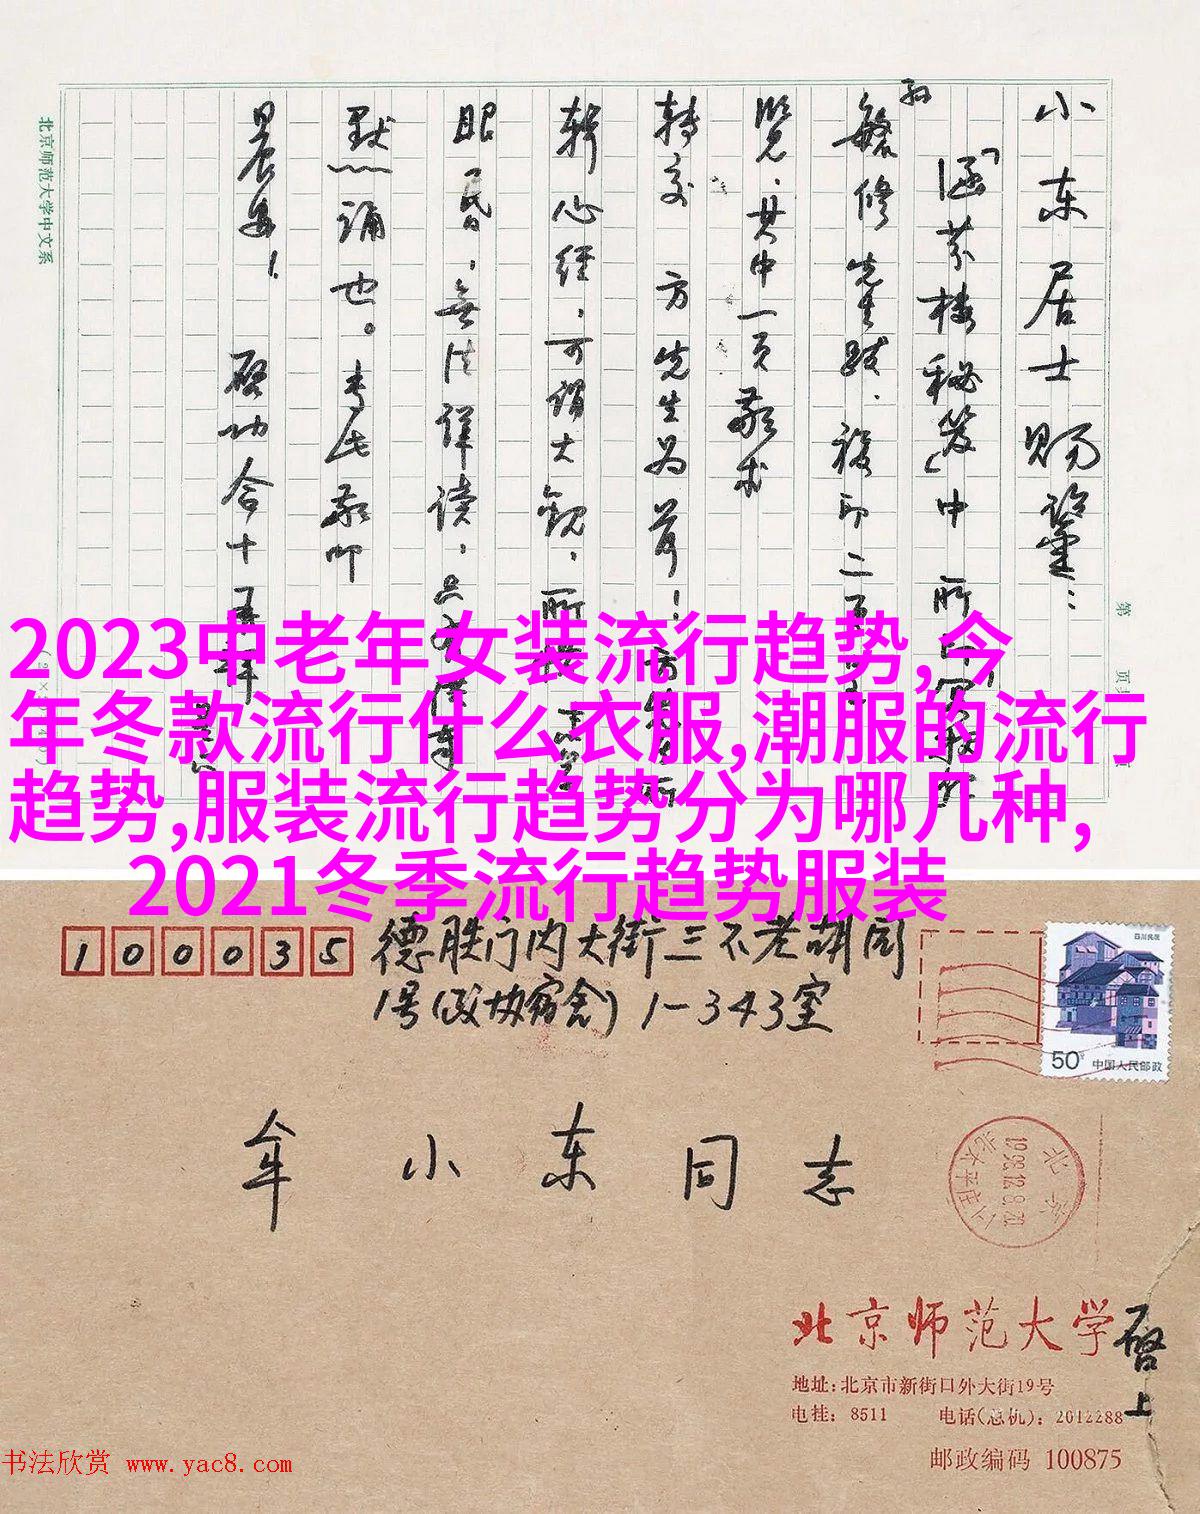 小东居士赐鉴：
「涵芬楼秘笈」中所
孙
繁修先生跋，複印二百
覽，其中一页敬求
转交 方先生为荷！方先生
辑心经，可谓大觀，所
眼昏，無法详读，只
默诵也。专此敬叩
晨安！ 启功合十
北京师范大学中文系
第 页
2023中老年女装流行趋势,今
年冬款流行什么衣服,潮服的流行
趋势,服装流行趋势分为哪几种,
2021冬季流行趋势服装
100035
德胜门内大街三不老胡同
1号(政协宿舍) 1-343室
四川民居
50分 中国人民邮政
牟小东同志
北京
北京师范大学 启上
地址:北京市新街口外大街19号
电挂: 8511 电话(总机): 2012288
邮政编码 100875
书法欣赏 www.yac8.com